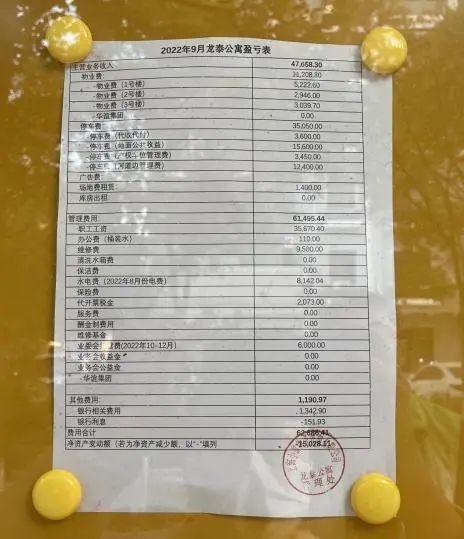 2022年9月龙泰公寓盈亏表
主营业务收入 47,658.30
物业费: 11,208.30
-物业费（1号楼） 5,222.60
-物业费（2号楼） 2,946.00
-物业费（3号楼） 3,039.70
-华谊集团 0.00
停车费: 35,050.00
-停车费（代收代付） 3,600.00
-停车费（地面公共收益） 15,600.00
-停车费（ 权车位管理费） 3,450.00
-停车费（河道边管理费） 12,400.00
广告费:
场地费租赁: 1,400.00
库房出租: 0.00
管理费用: 61,495.44
职工工资 35,670.40
办公费（桶装水） 110.00
维修费 9,500.00
清洗水箱费 0.00
保洁费 0.00
水电费（2022年8月份电费） 8,142.04
保险费 0.00
代开票税金 2,073.00
服务费 0.00
酬金制费用 0.00
维修基金 0.00
业委会 费(2022年10-12月） 6,000.00
业务会收益金 0.00
业务会公益金 0.00
-华谊集团 0.00
其他费用: 1,190.97
银行相关费用 1,342.90
银行利息 -151.93
费用合计 62,686.41
净资产变动额（若为净资产减少额，以"-"填列 -15,028.11
龙泰公寓
管理处